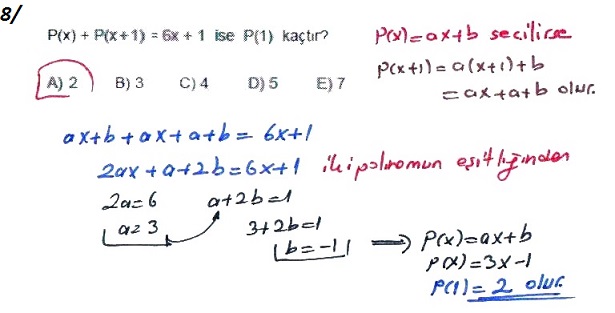 8/
P(x) + P(x+1) = 6x + 1 ise P(1) kaçtır?
A) 2 B) 3 C) 4 D) 5 E) 7
P(x)=ax+b seçilirse
P(x+1)=a(x+1)+b
=ax+a+b olur.
ax+b+ax+a+b=6x+1
2ax+a+2b=6x+1 iki polinomun eşitliğinden
2a=6 a+2b=1
a=3 3+2b=1
b=-1 ⟹ P(x)=ax+b
P(x)=3x-1
P(1)=2 olur.